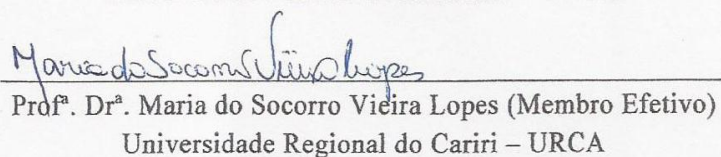 Maria do Socorro Vieira Lopes
Profª. Drª. Maria do Socorro Vieira Lopes (Membro Efetivo)
Universidade Regional do Cariri – URCA